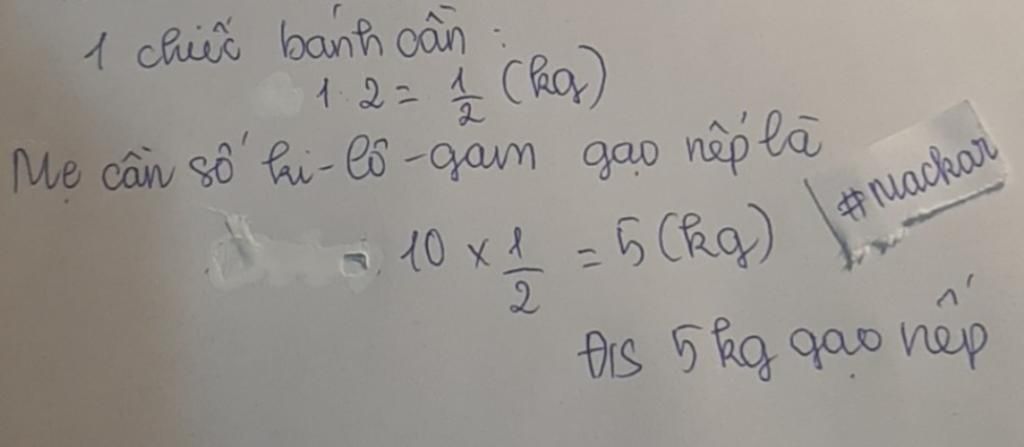 1 chiếc bánh cần :
1 : 2 = 1/2 (kg)
Mẹ cần số ki-lô-gam gạo nếp là
#mackar
10 x 1/2 = 5 (kg)
Đ/S 5 kg gạo nếp